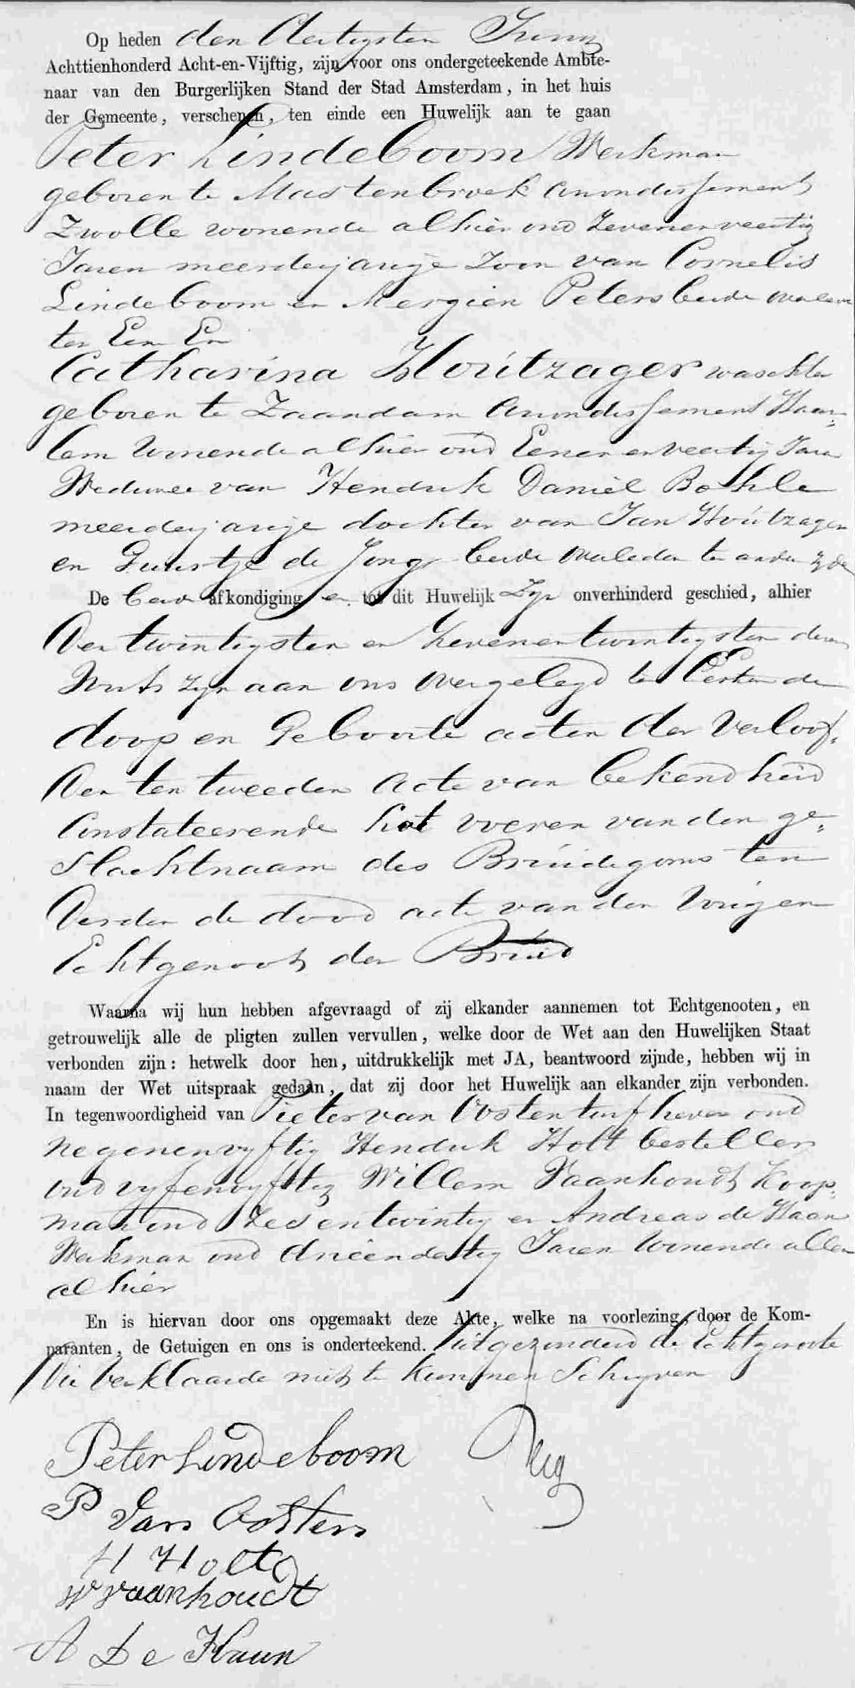 Op heden den dertigsten Junij
Achttienhonderd Acht-en-Vijftig, zijn voor ons ondergeteekende Ambte-
naar van den Burgerlijken Stand der Stad Amsterdam, in het huis
der Gemeente, verschenen, ten einde een Huwelijk aan te gaan
Peter Lindeboom Werkman
geboren te Mastenbroek Arrondissement
Zwolle wonende alhier oud Zevenenveertig
Jaren meerderjarige Zoon van Cornelis
Lindeboom en Mergien Peters beide overleden
ter Een En
Catharina Houtzager waschter
geboren te Zaandam Arrondissement Haar-
lem Wonende alhier oud Eenenenveertig Jaren
Weduwe van Hendrik Daniel Bohle
meerderjarige dochter van Jan Houtzager
en Guurtje de Jong beide overleden ter andere zyde
De beide afkondigingen tot dit Huwelijk Zyn onverhinderd geschied, alhier
Den twintigsten en Zevenentwintigsten dezer
Nuts zyn aan ons overgelegd ten Eersten de
doop en Geboorte acten der Verloof-
den ten tweeden Acte van bekendheid
Constateerende het voeren van den ge-
slachtnaam des Bruidegoms ten
Derden de dood acte van den Vorigen
Echtgenoot der Bruid
Waarna wij hun hebben afgevraagd of zij elkander aannemen tot Echtgenooten, en
getrouwelijk alle de pligten zullen vervullen, welke door de Wet aan den Huwelijken Staat
verbonden zijn: hetwelk door hen, uitdrukkelijk met JA, beantwoord zijnde, hebben wij in
naam der Wet uitspraak gedaan, dat zij door het Huwelijk aan elkander zijn verbonden.
In tegenwoordigheid van Pieter van Oosten turfhever oud
negenenvyftig Hendrik Holt besteller
oud vyfenvyftig Willem Vaanhoudt Koop-
man oud Zesentwintig en Andreas de Haan
Werkman oud drieendertig Jaren Wonende allen
alhier
En is hiervan door ons opgemaakt deze Akte, welke na voorlezing, door de Kom-
paranten, de Getuigen en ons is onderteekend. Uitgezonderd de Echtgenoote
Die Verklaarde niet te kunnen Schryven
Peter Lindeboom
P van Oosten
H Holt
W vaanhoudt
A De Haan